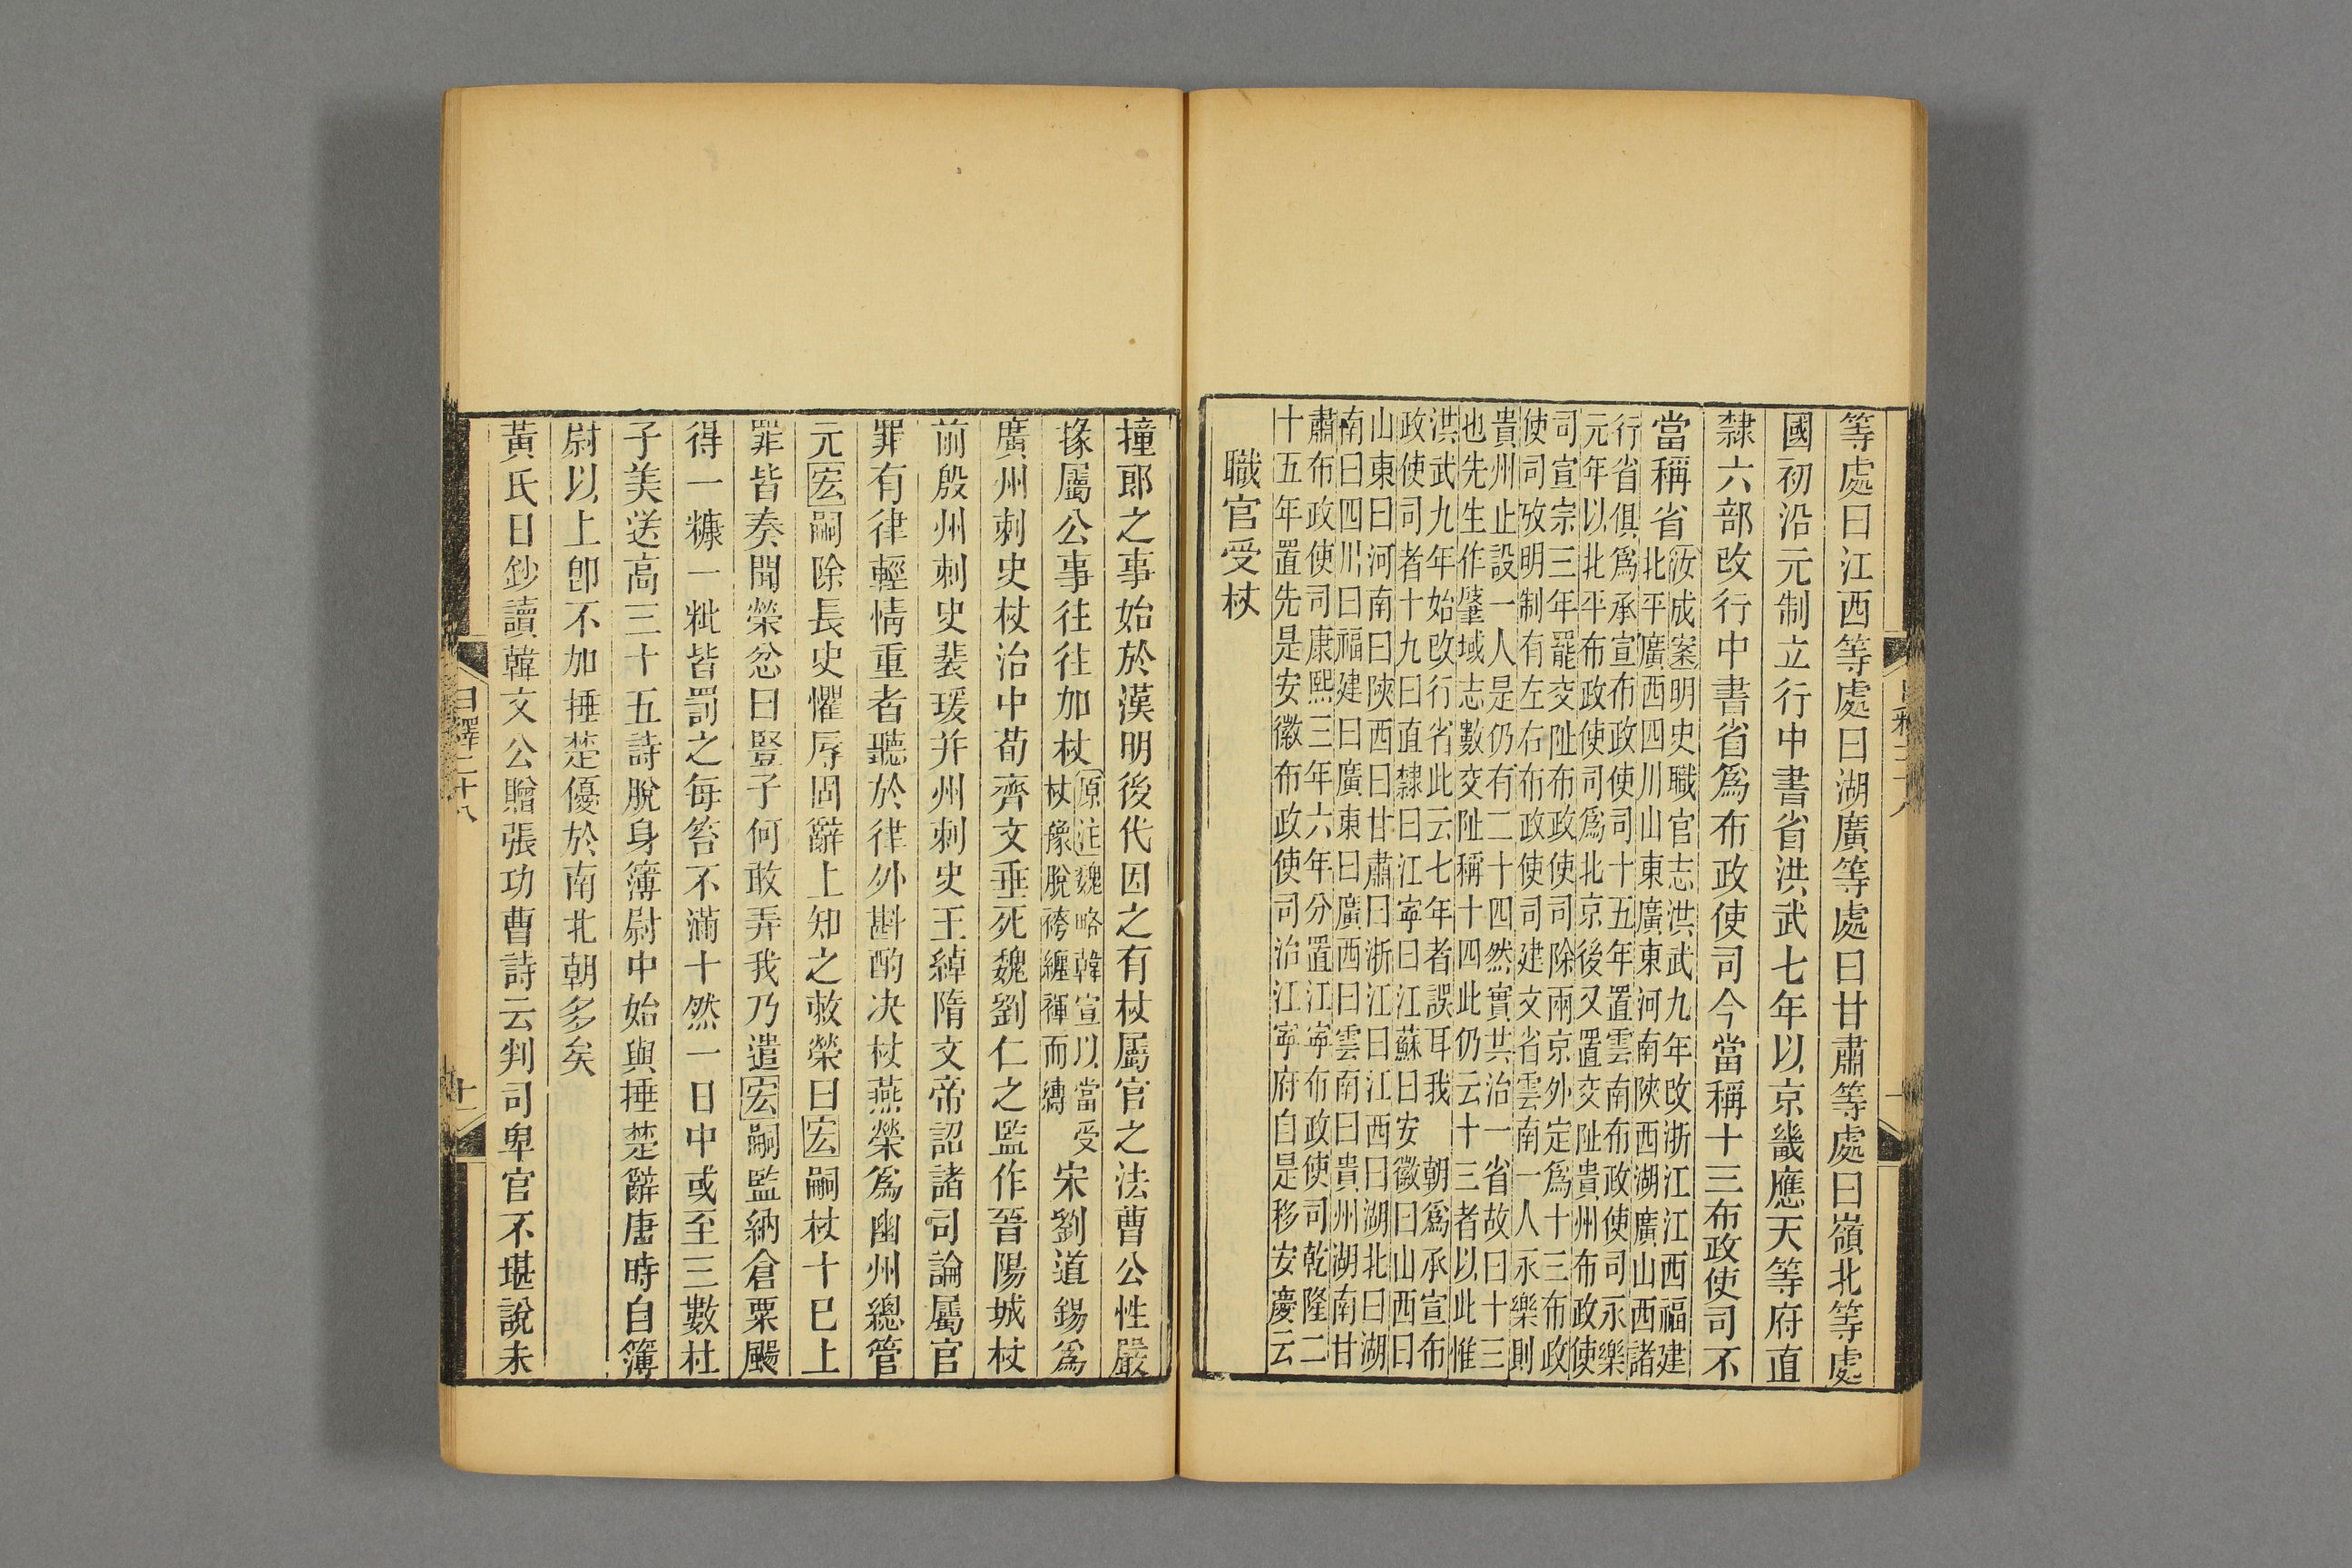 等處曰江西等處曰湖廣等處曰甘肅等處曰嶺北等處
國初沿元制立行中書省洪武七年以京畿應天等府直
隸六部改行中書省爲布政使司今當稱十三布政使司不
當稱省汝成案明史職官志洪武九年改浙江江西福建
北平廣西四川山東廣東河南陝西湖廣山西諸
行省俱爲承宣布政使司十五年置雲南布政使司永樂
元年以北平布政使司爲北京後又置交阯貴州布政使
司宣宗三年罷交阯布政使司除兩京外定爲十三布政
使司攷明制有左右布政使司建文省雲南一人永樂則
貴州止設一人是仍有二十四然實共治一省故曰十三
也先生作肇域志數交阯稱十四此仍云十三者以此惟
洪武九年始改行省此云七年者誤耳我 朝爲承宣布
政使司者十九曰直隸曰江寧曰江蘇曰安徽曰山西曰
山東曰河南曰陝西曰甘肅曰浙江曰江西曰湖北曰湖
南曰四川曰福建曰廣東曰廣西曰雲南曰貴州湖南甘
肅布政使司康熙三年六年分置江寧布政使司乾隆二
十五年置先是安徽布政使司治江寧府自是移安慶云
職官受杖
撞郎之事始於漢明後代因之有杖屬官之法曹公性嚴
掾屬公事往往加杖原注魏略韓宣以當受
杖豫脫袴纏褌而縛
宋劉道錫爲
廣州刺史杖治中荀齊文垂死魏劉仁之監作晉陽城杖
前殷州刺史裴瑗并州刺史王綽隋文帝詔諸司論屬官
罪有律輕情重者聽於律外斟酌決杖燕榮爲幽州總管
元宏嗣除長史懼辱固辭上知之敕榮曰宏嗣杖十已上
罪皆奏聞榮忿曰豎子何敢弄我乃遣宏嗣監納倉粟颺
得一糠一粃皆罰之每笞不滿十然一日中或至三數杜
子美送高三十五詩脫身簿尉中始與捶楚辭唐時自簿
尉以上卽不加捶楚優於南北朝多矣
黃氏日鈔讀韓文公贈張功曹詩云判司卑官不堪說未
日釋二十八
十一